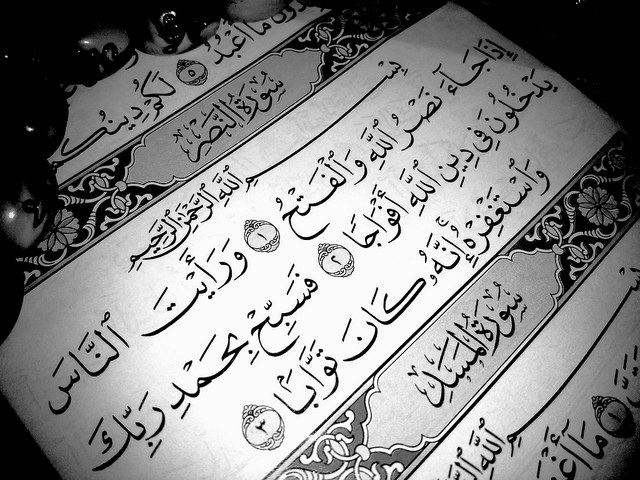 مَآ أَعْبُدُ ٥ لَكُمْ
سُورَةُ النَّصْرِ
بِسْمِ ٱللَّهِ ٱلرَّحْمَٰنِ ٱلرَّحِيمِ
إِذَا جَآءَ نَصْرُ ٱللَّهِ وَٱلْفَتْحُ ١ وَرَأَيْتَ ٱلنَّاسَ
يَدْخُلُونَ فِى دِينِ ٱللَّهِ أَفْوَاجًا ٢ فَسَبِّحْ بِحَمْدِ رَبِّكَ
وَٱسْتَغْفِرْهُ إِنَّهُۥ كَانَ تَوَّابًۢا ٣
سُورَةُ المَسَدِ
بِسْمِ ٱللَّهِ
١ مَآ